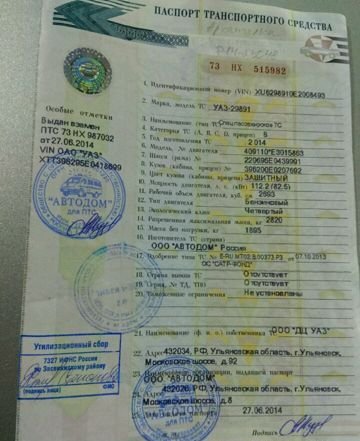 ПАСПОРТ ТРАНСПОРТНОГО СРЕДСТВА
73 НХ 515982
Особые отметки
Выдан взамен
ПТС 73 НХ 987032
от 27.06.2014
VIN ОАО "УАЗ"
"АВТОДОМ"
для ПТС
Утилизационный сбор
7327 ИФНС России
по Засвияжскому району
1. Идентификационный номер (VIN)
2. Марка, модель ТС УАЗ-29891
3. Наименование (тип ТС)
4. Категория ТС (А, В, С, D, прицеп) В
5. Год изготовления ТС 2014
6. Модель, № двигателя
7. Шасси (рама) №
8. Кузов (кабина, прицеп) №
9. Цвет кузова (кабины, прицепа) ЗАЩИТНЫЙ
10. Мощность двигателя, л. с. (кВт) 112.2 (82.5)
11. Рабочий объем двигателя, куб. см 2693
12. Тип двигателя Бензиновый
13. Экологический класс Четвертый
14. Разрешенная максимальная масса, кг 2820
15. Масса без нагрузки, кг 1895
16. Изготовитель ТС (страна)
ООО "АВТОДОМ" Россия
17. Одобрение типа ТС № от 07.10.2013
ОС "САТР-ФОНД"
18. Страна вывоза ТС Отсутствует
19. Серия, № ТД, ТПО Отсутствует
20. Таможенные ограничения Не установлены
21. Наименование (ф. и. о.) собственника ТС ООО "ДЦ УАЗ"
22. Адрес 432034, РФ, Ульяновская область, г. Ульяновск,
Московское шоссе, д.92
23. Наименование организации, выдавшей паспорт
ООО "АВТОДОМ"
24. Адрес РФ, Ульяновская область, г. Ульяновск,
Московское шоссе, д.8
27.06.2014
Подпись